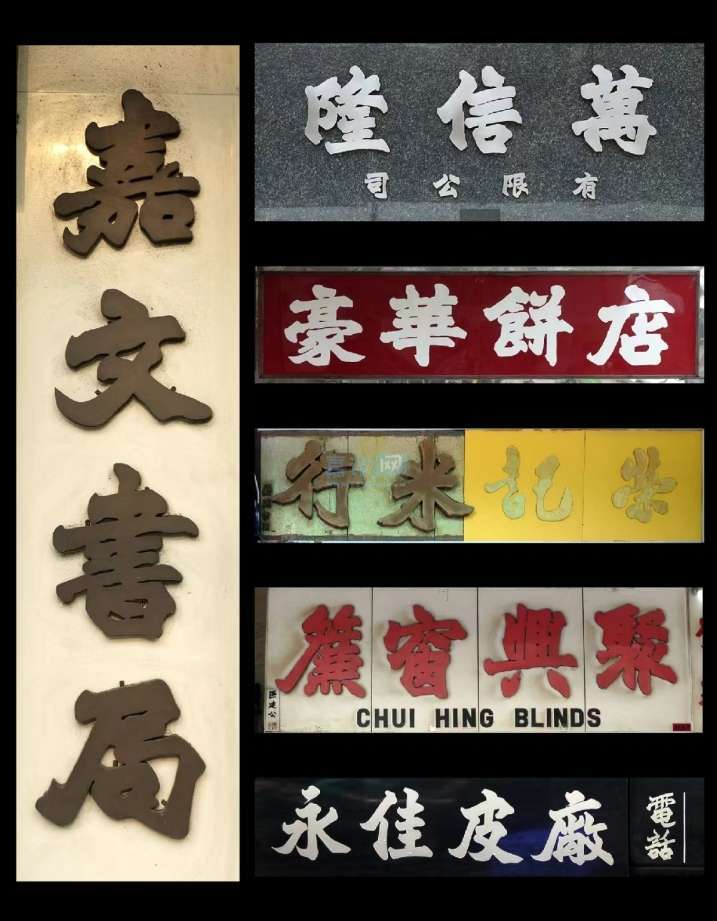 嘉文書局
萬信隆
有限公司
豪華餅店
榮記米行
聚興窗簾
CHUI HING BLINDS
永佳皮廠
電話